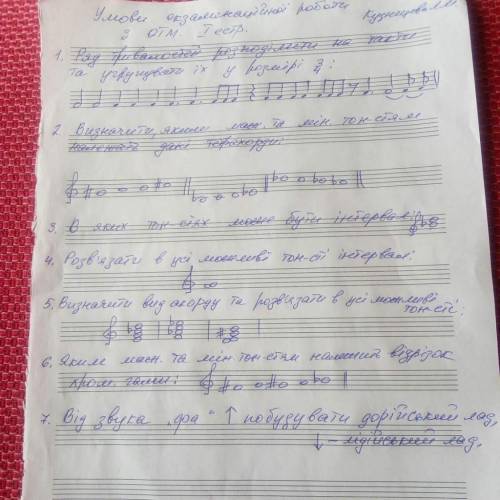 Умови екзаменаційної роботи
з ОТМ. I сестр. Кузнецова Л.М.
1. Ряд тривалостей розподілити на такти
та угрупувати їх у розмірі 3/4:
2. Визначити, яким маж. та мін. тон-стям
належать дані тетрахорди:
3. В яких тон-стях може бути інтервал:
4. Розв'язати в усі можливі тон-сті інтервал:
5. Визначити вид акорду та розв'язати в усі можливі
тон-сті:
6. Яким маж. та мін тон-стям належит відрізок
хром. гами:
7. Від звука „фа" ↑ побудувати дорійський лад,
↓ - лідійський лад,